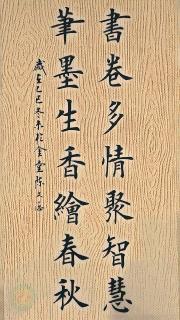 書卷多情聚智慧
筆墨生香繪春秋
歲在乙巳冬末於金堂陈